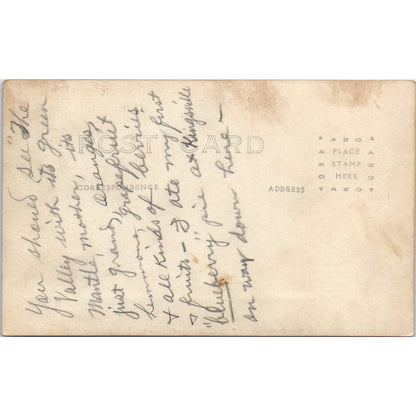 POST CARD
CORRESPONDENCE
ADDRESS
AZOA
PLACE
STAMP
HERE
AZOA
You should see "The
Valley with its green
Mantle, mother, its
just grand, oranges,
lemmons, grapefruit
& all kinds of berries
& fruits - I ate my first
"blueberry" pie at Kingsville
on way down here -